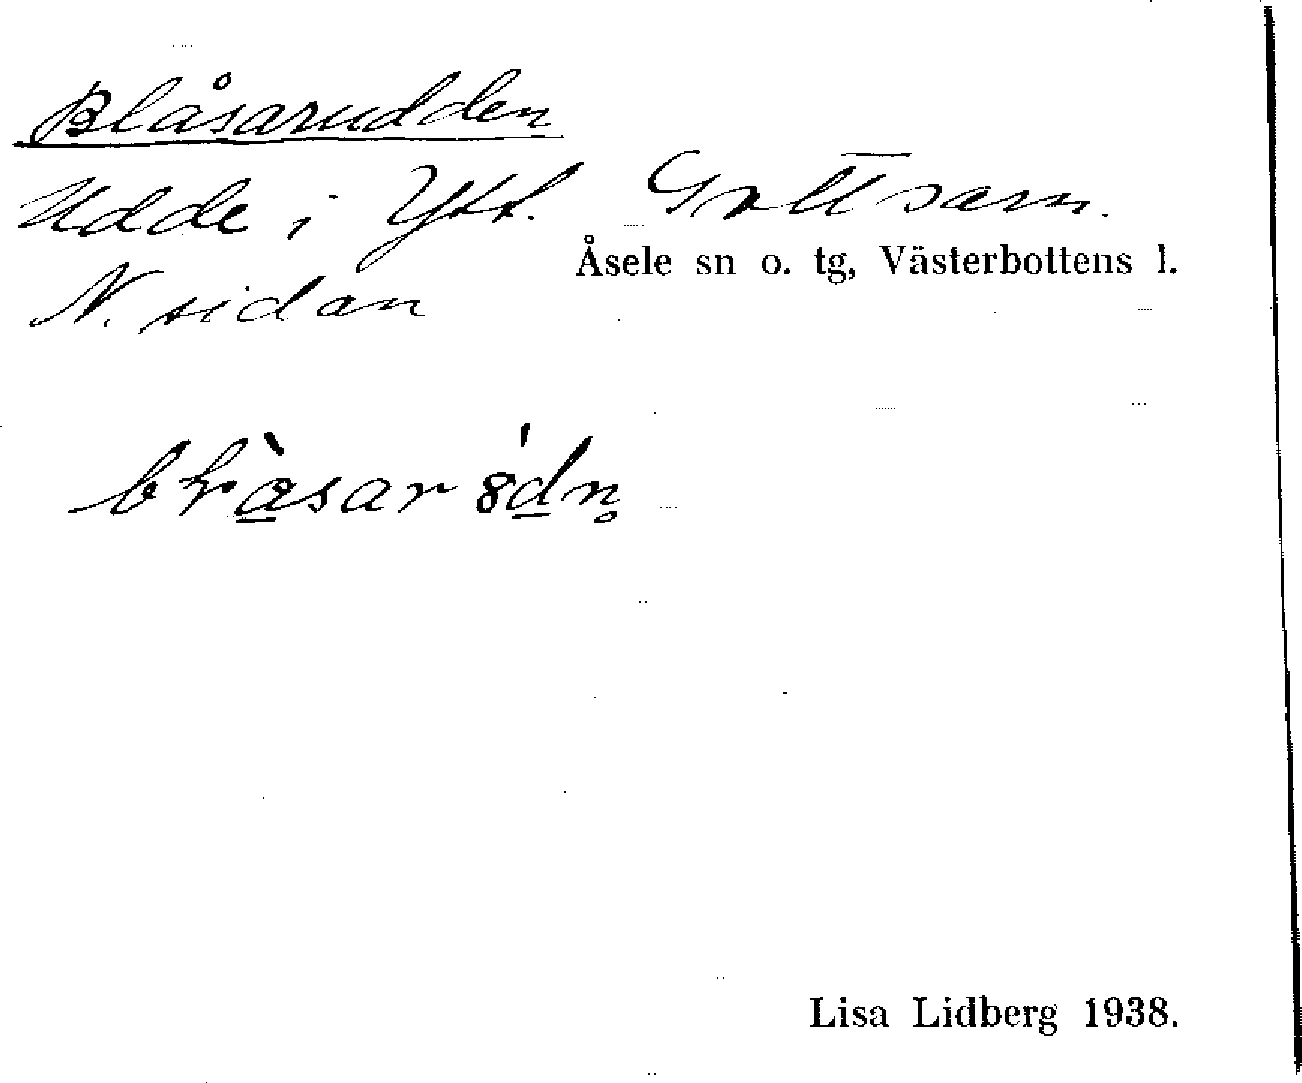 Blåsarudden
Udde i Ytt. Gottsarn.
Åsele sn o. tg, Västerbottens l.
N. sidan
Lisa Lidberg 1938.